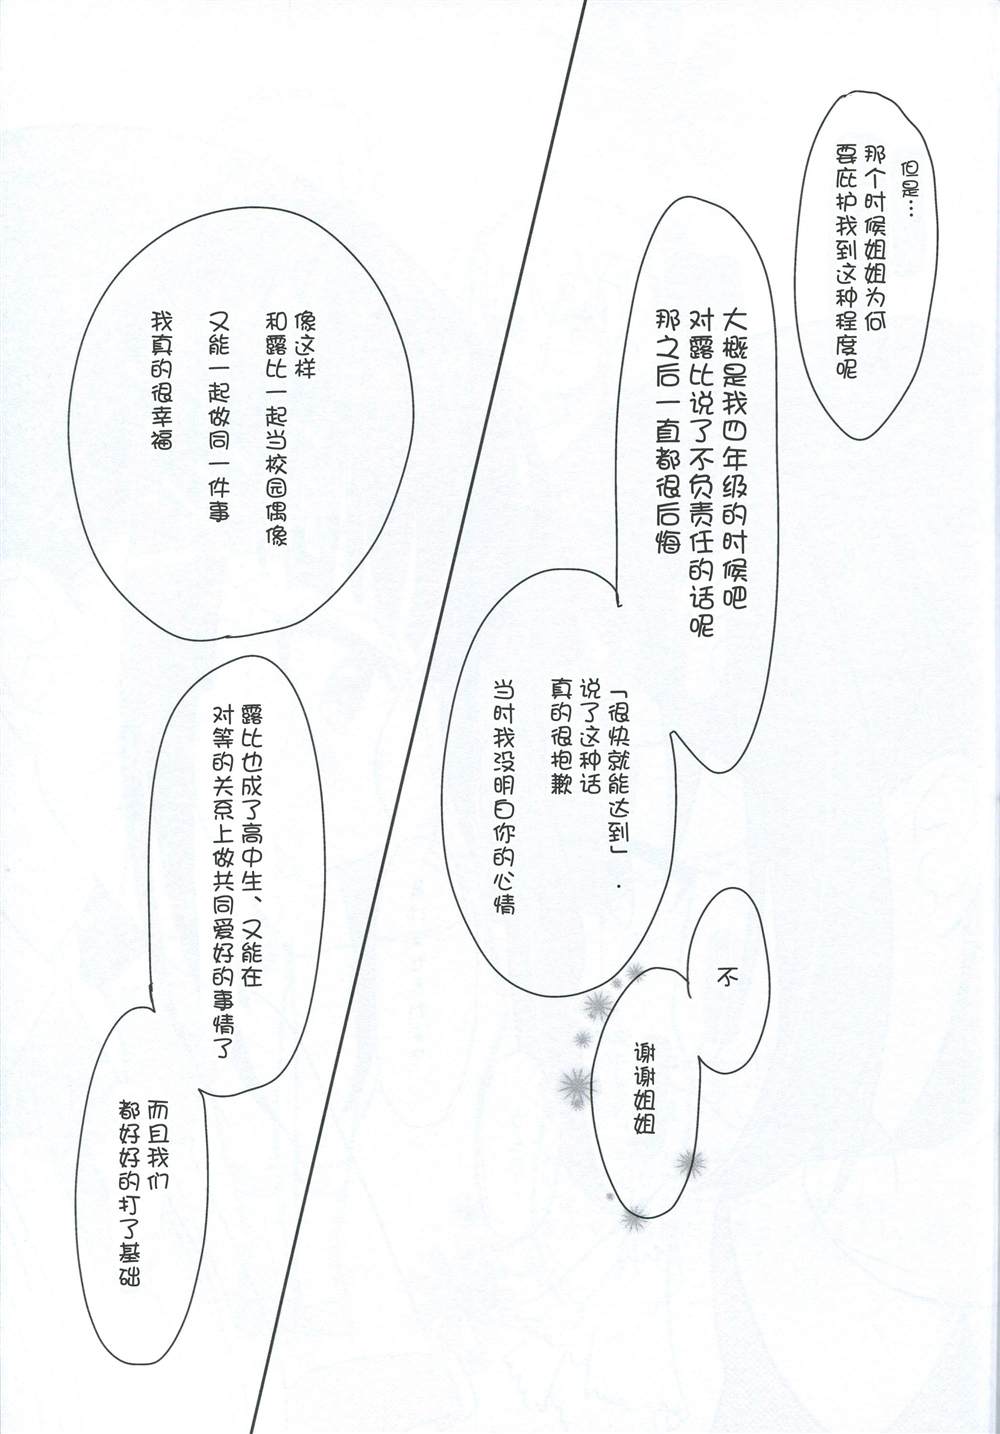 但是…
那个时候姐姐为何
要庇护我到这种程度呢
大概是我四年级的时候吧
对露比说了不负责任的话呢
那之后一直都很后悔
「很快就能达到」.
说了这种话
真的很抱歉
当时我没明白你的心情
不
谢谢姐姐
像这样
和露比一起当校园偶像
又能一起做同一件事
我真的很幸福
露比也成了高中生、又能在
对等的关系上做共同爱好的事情了
而且我们
都好好的打了基础